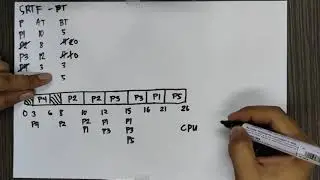 SRTF - PT
P AT BT
P1 10 5
P2 8
P3 12
P4 3 3
5
P4 P2 P2 P3 P3 P1 P5
0 3 6 8 10 12 15 16 21 26
P4 P2 P2 P2 P3
P1 P3 P1
P5
CPU